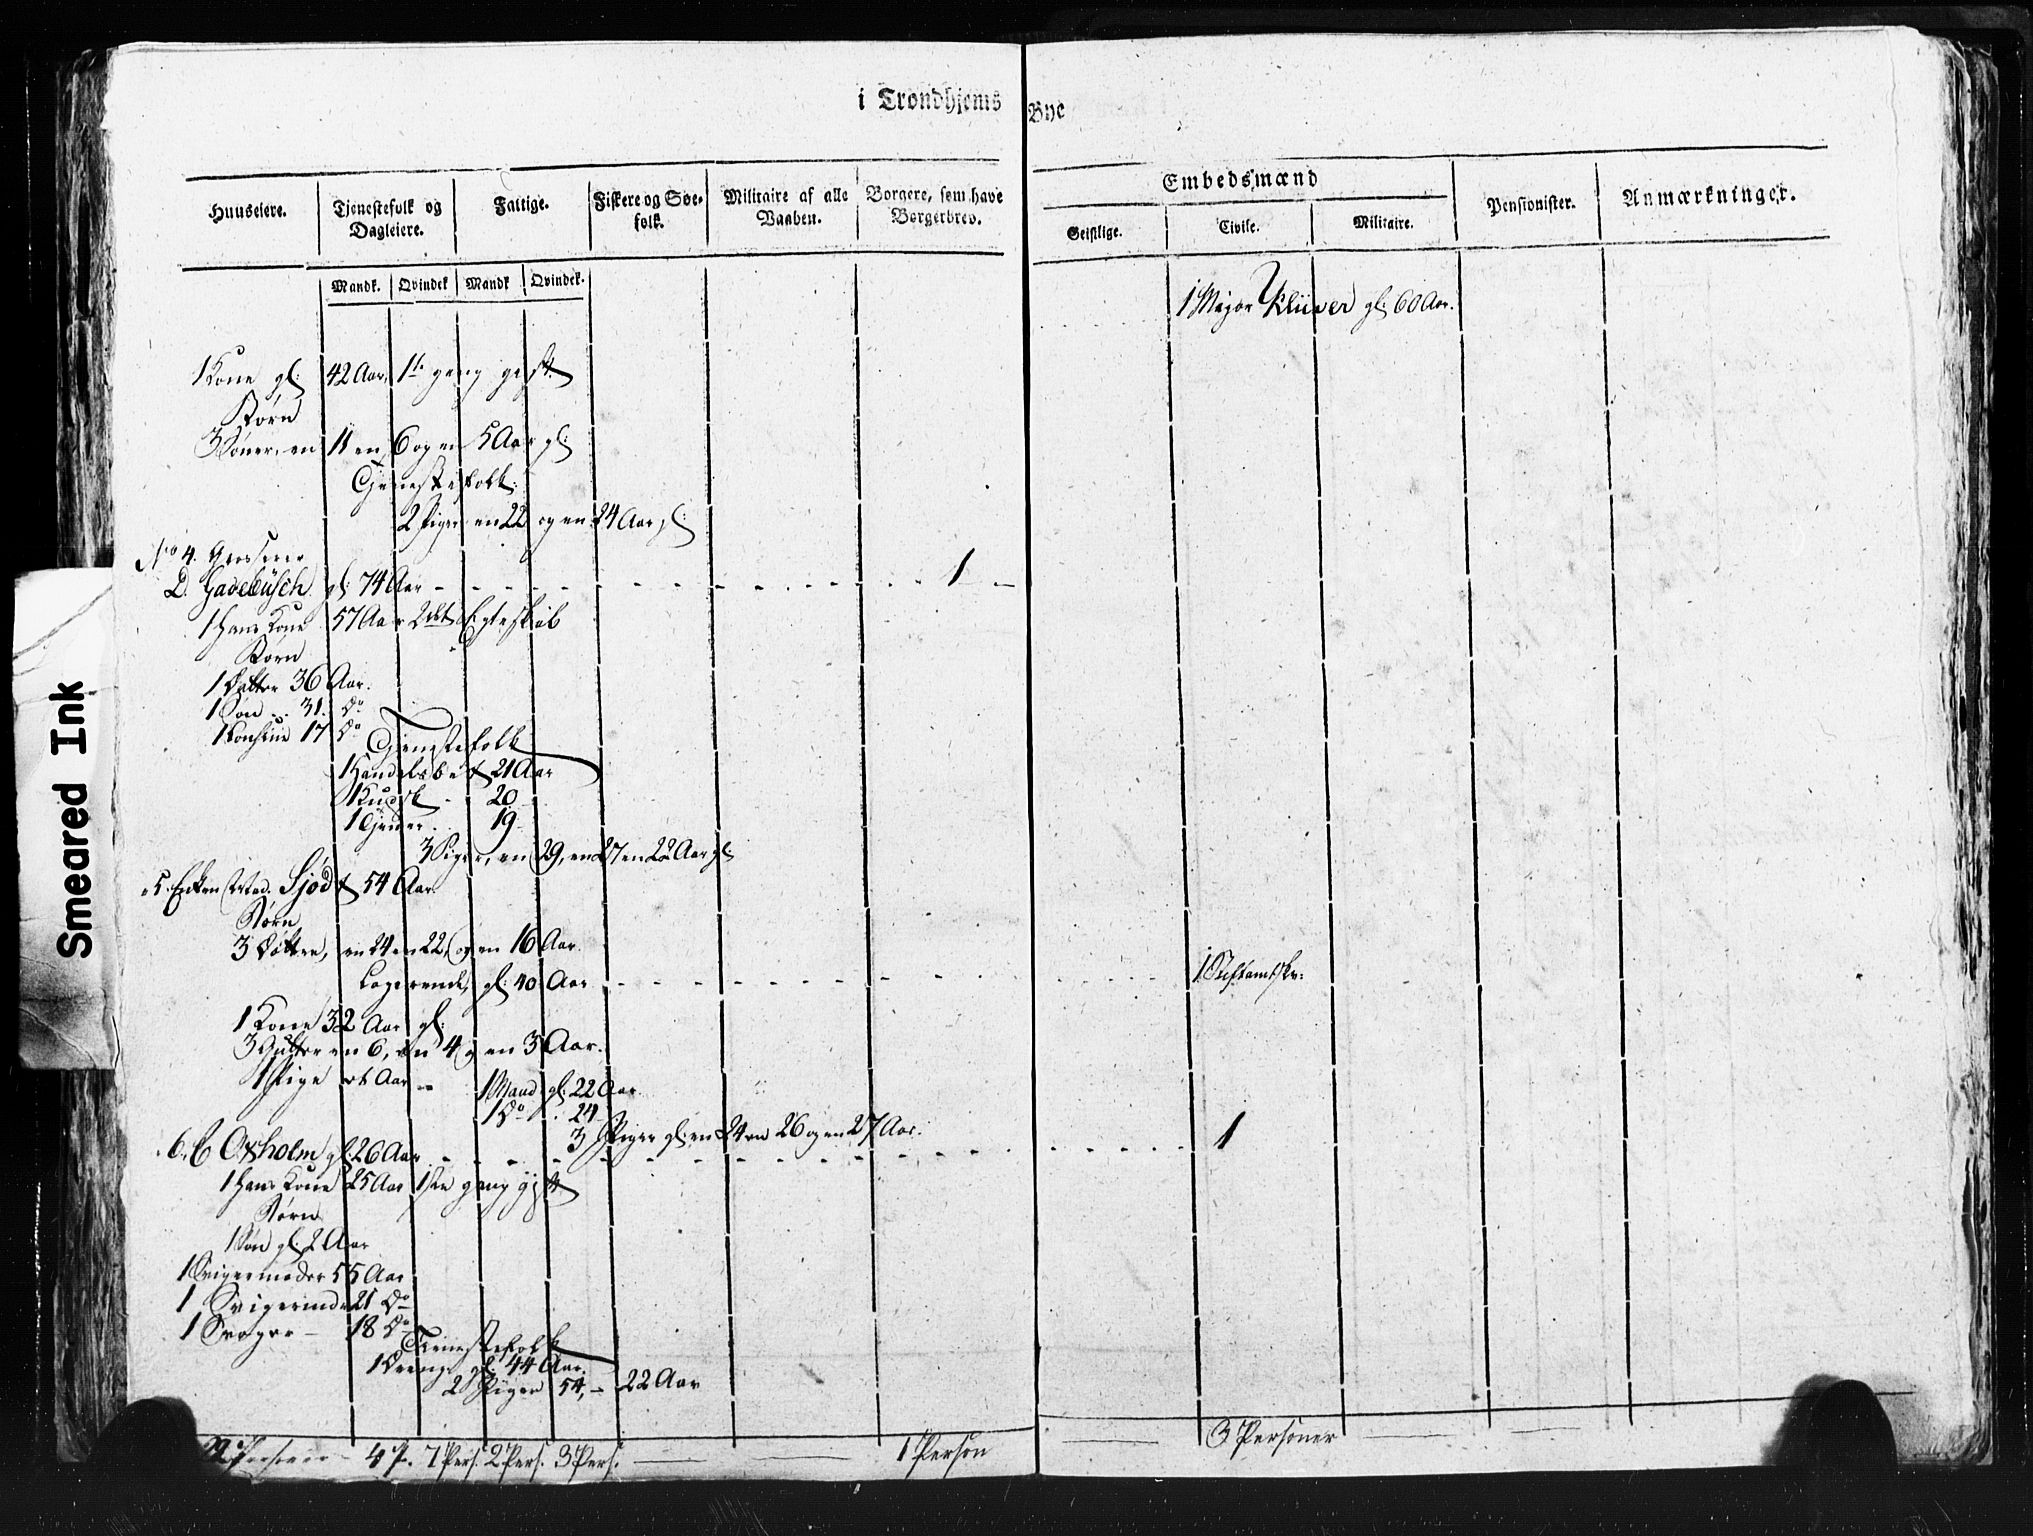 i Trondhjems Bye
Huuseiere. Tjenestefolk og Dagleiere. Fattige. Fiskere og Søe-folk. Militaire af alle Vaaben. Borgere, som have Borgerbrev. Embedsmænd Pensionister. Anmærkninger.
Geistlige. Civile. Militaire.
Mandk. Qvindek Mandk Qvindek.
1 Major Klüver gl: 60 Aar.
1 Kone gl: 42 Aar, 1te gang gift
Børn
3 Søner, en 11 en 6 og en 5 Aar gl:
Tjenestefolk:
2 Piger en 22 og en 24 Aar gl:
No 4. Grosserer
D. Gadebusch gl: 74 Aar - - - 1 -
1 Hans Kone 57 Aar 2det Egteskab
Børn
1 Datter 36 Aar.
1 Søn .. 31. Do
1 17 Do
Tjenestefolk
1 Handelsbet 21 Aar
1 Kudsk - 20
1 Tjener . 19
3 Piger, en 29, en 27 en 22 Aar gl:
" 5. Enken Mad. Sjødt 54 Aar.
Børn
3 Døttre, en 24 en 22, og en 16 Aar.
Logerende, gl: 40 Aar - - - 1 Stiftamtskr:
1 Kone 32 Aar gl:
3 Gutter en 6, en 4 og en 3 Aar.
1 Pige Aar -
1 Mand gl: 22 Aar
1 Do . 24
3 Piger gl: en 24 en 26 og en 27 Aar.
" 6. C Oxholm gl: 26 Aar - - - 1
1 Hans Kone 25 Aar 1ste gang gift
Børn
1 Søn gl: 2 Aar
1 Svigermoder 55 Aar
1 Svigerinde 21 Do
1 Svoger - 18 Do
Tienestefolk
1 Dreng gl: 44 Aar.
2 Piger 54, - 22 Aar
Personer - 4 P. 7 Pers. 2 Pers. 3 Pers. 1 Person 3 Personer
Smeared Ink